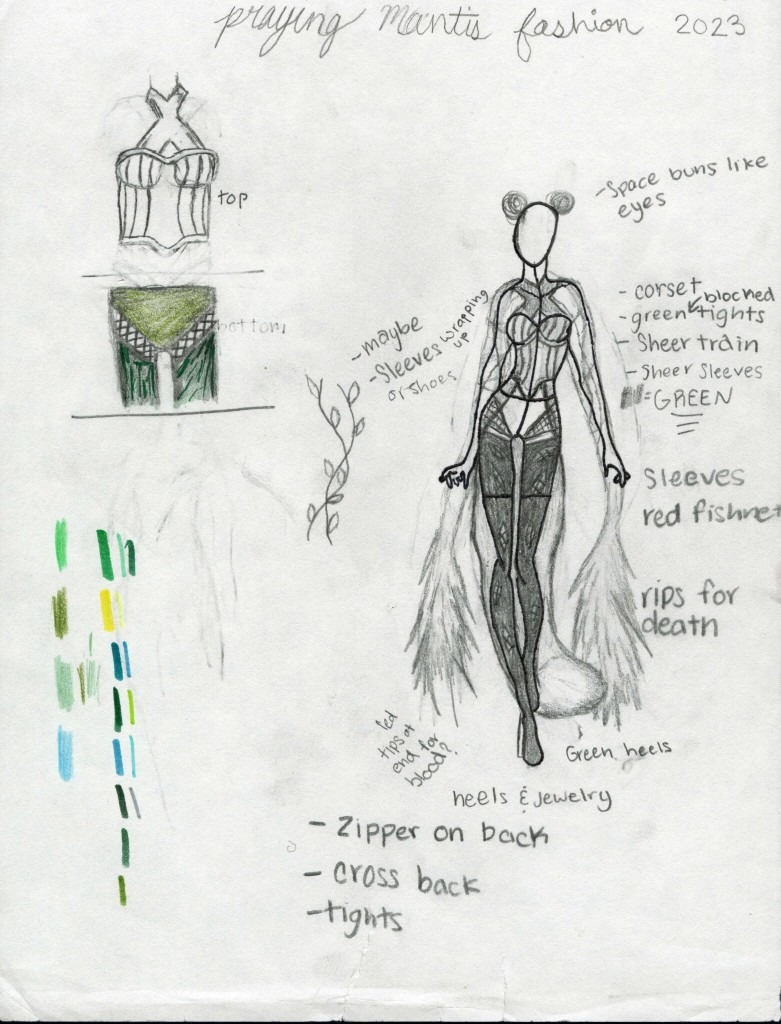 praying mantis fashion 2023
top
bottom
- Space buns like
eyes
- maybe
- Sleeves wrapping
up
or shoes
- corset
- green blocked tights
- Sheer train
- Sheer Sleeves
= GREEN
Sleeves
red fishnet
rips for
death
red
tips at
end for
blood?
Green heels
heels & jewelry
- Zipper on back
- cross back
- tights